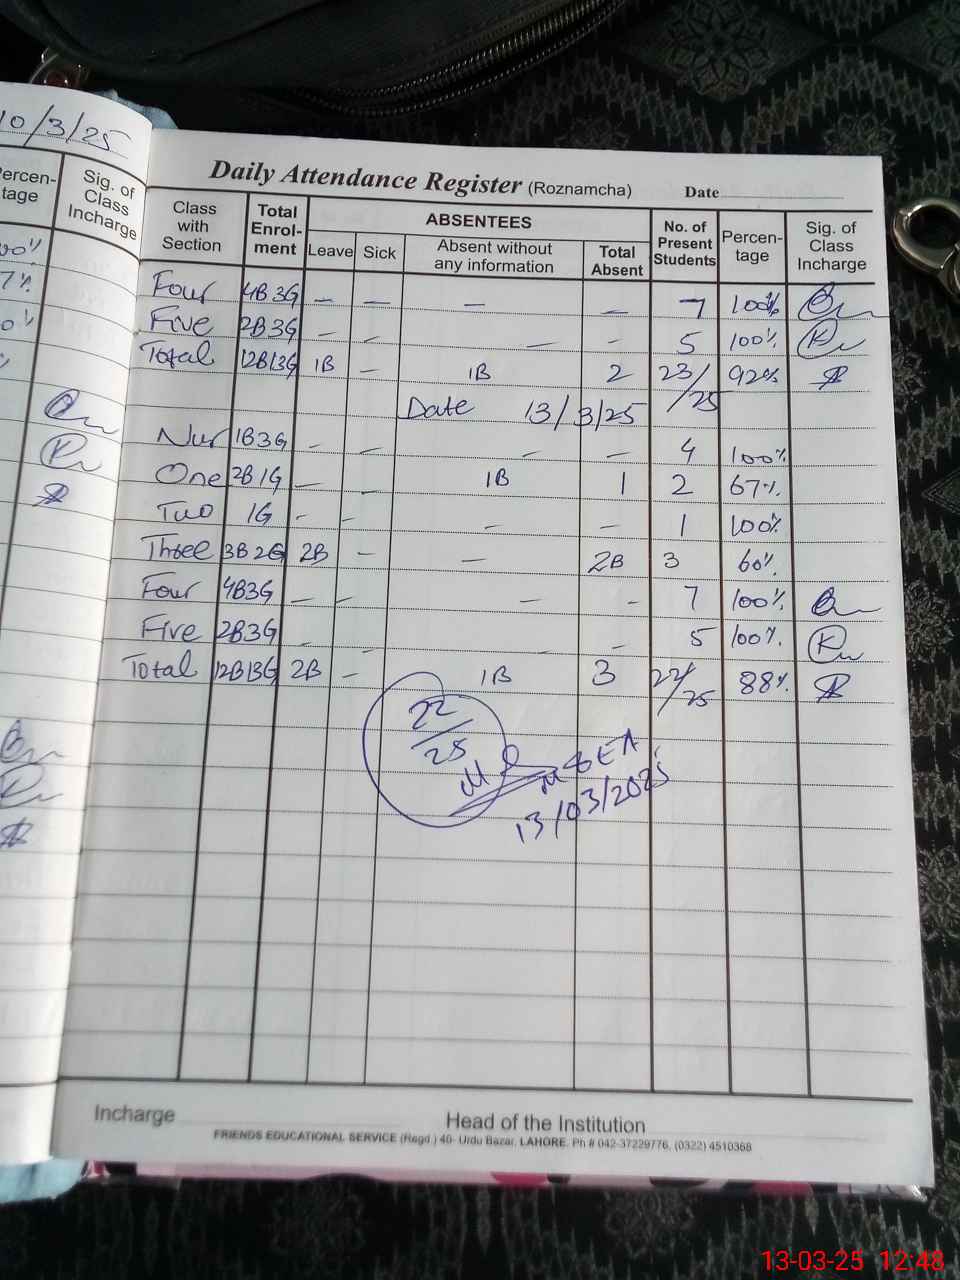 10/3/25
Percen-
tage
Sig. of
Class
Incharge
Daily Attendance Register (Roznamcha) Date
Class
with
Section
Total
Enrol-
ment
ABSENTEES
Leave Sick Absent without
any information Total
Absent
No. of
Present
Students
Percen-
tage
Sig. of
Class
Incharge
Four 4B3G – – – – 7 100%
Five 2B3G – – – – 5 100%
Total 12B13G 1B – 1B 2 23/25 92%
Date 13/3/25
Nur 1B3G – – – – 4 100%
One 2B1G – – 1B 1 2 67%
Two 1G – – – – 1 100%
Three 3B2G 2B – – 2B 3 60%
Four 4B3G – – – – 7 100%
Five 2B3G – – – – 5 100%
Total 12B13G 2B – 1B 3 22/25 88%
22/25
13/03/2025
Incharge Head of the Institution
FRIENDS EDUCATIONAL SERVICE (Regd.) 40- Urdu Bazar, LAHORE. Ph # 042-37229776, (0322) 4510368
13-03-25 12:48